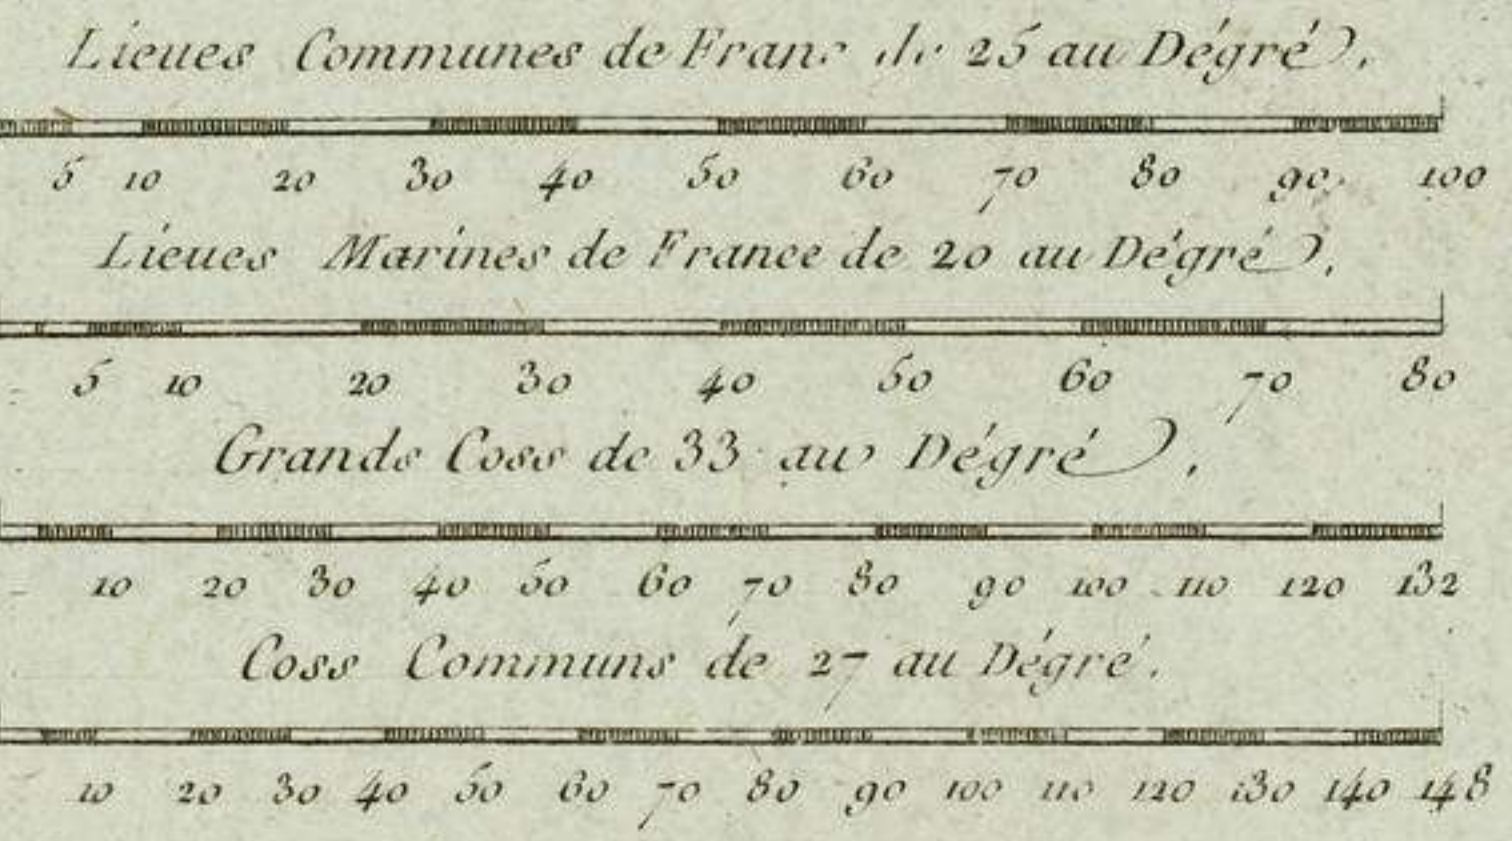 Lieues Communes de Franc de 25 au Dégré.
5 10 20 30 40 50 60 70 80 90 100
Lieues Marines de France de 20 au Dégré.
5 10 20 30 40 50 60 70 80
Grands Coss de 33 au Dégré.
10 20 30 40 50 60 70 80 90 100 110 120 132
Coss Communs de 27 au Dégré.
10 20 30 40 50 60 70 80 90 100 110 120 130 140 148